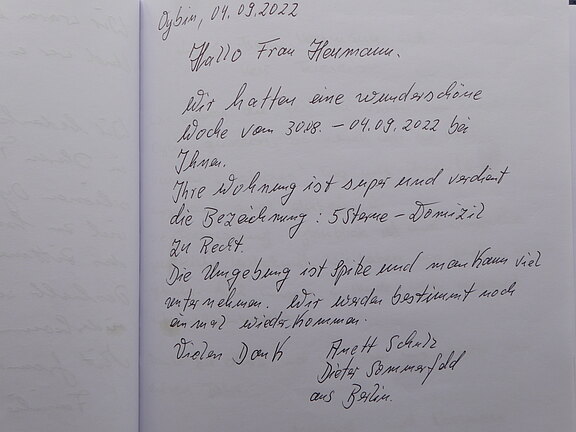 Oybin, 04.09.2022
Hallo Frau Heumann.
Wir hatten eine wunderschöne
Woche vom 30.08. – 04.09.2022 bei
Ihnen.
Ihre Wohnung ist super und verdient
die Bezeichnung : 5 Sterne – Domizil
zu Recht.
Die Umgebung ist Spitze und man kann viel
unternehmen. Wir werden bestimmt noch
einmal wieder kommen.
Vielen Dank Anett Schulz
Dieter Sommerfeld
aus Berlin.